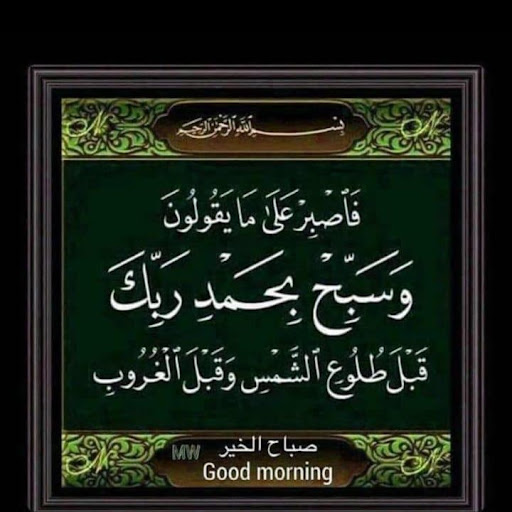 بِسْمِ اللَّهِ الرَّحْمَٰنِ الرَّحِيمِ
فَٱصْبِرْ عَلَىٰ مَا يَقُولُونَ
وَسَبِّحْ بِحَمْدِ رَبِّكَ
قَبْلَ طُلُوعِ ٱلشَّمْسِ وَقَبْلَ ٱلْغُرُوبِ
صباح الخير
MW
Good morning